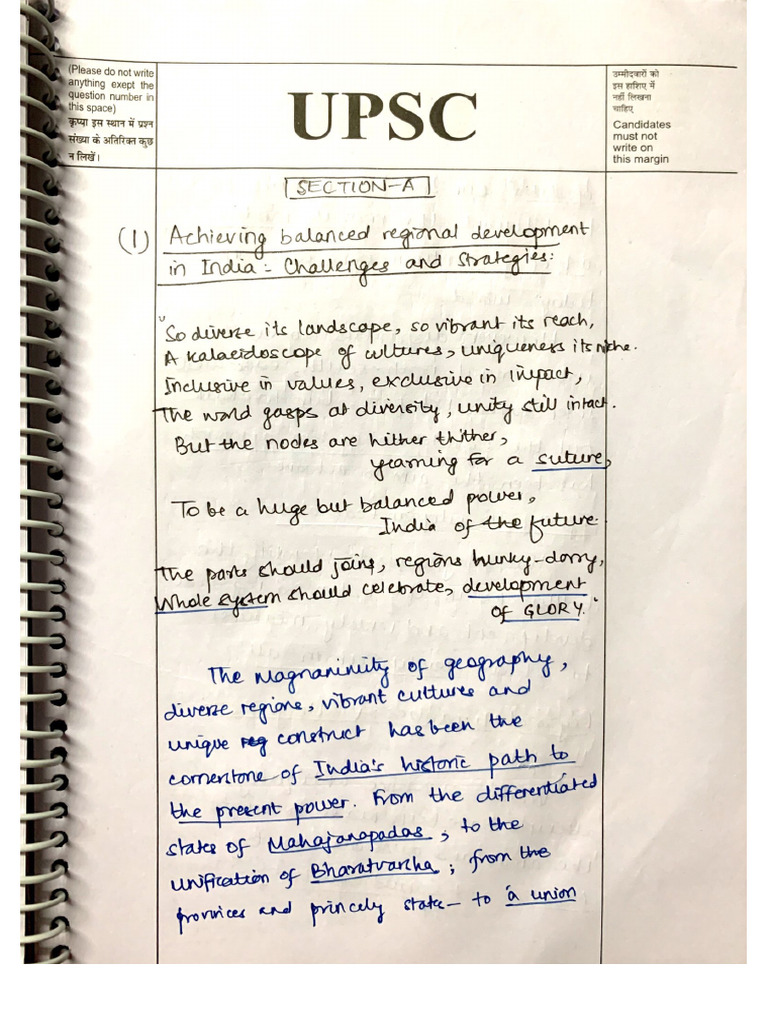 (Please do not write
anything exept the
question number in
this space)
कृप्या इस स्थान में प्रश्न
संख्या के अतिरिक्त कुछ
न लिखें।
UPSC
उम्मीदवारों को
इस हाशिए में
नहीं लिखना
चाहिए
Candidates
must not
write on
this margin
SECTION-A
(1) Achieving balanced regional development
in India: Challenges and Strategies:
"So diverse its landscape, so vibrant its reach,
A kalaeidoscope of cultures, uniqueness its niche.
Inclusive in values, exclusive in impact,
The world gasps at diversity, unity still intact.
But the nodes are hither thither,
yearning for a suture,
To be a huge but balanced power,
India of the future.
The parts should joins, regions hunky-dorry,
Whole system should celebrate, development
of GLORY."
The magnanimity of geography,
diverse regions, vibrant cultures and
unique reg construct has been the
cornerstone of India's historic path to
the present power. From the differentiated
states of Mahajanapadas, to the
unification of Bharatvarsha; from the
provinces and princely state- to 'a union